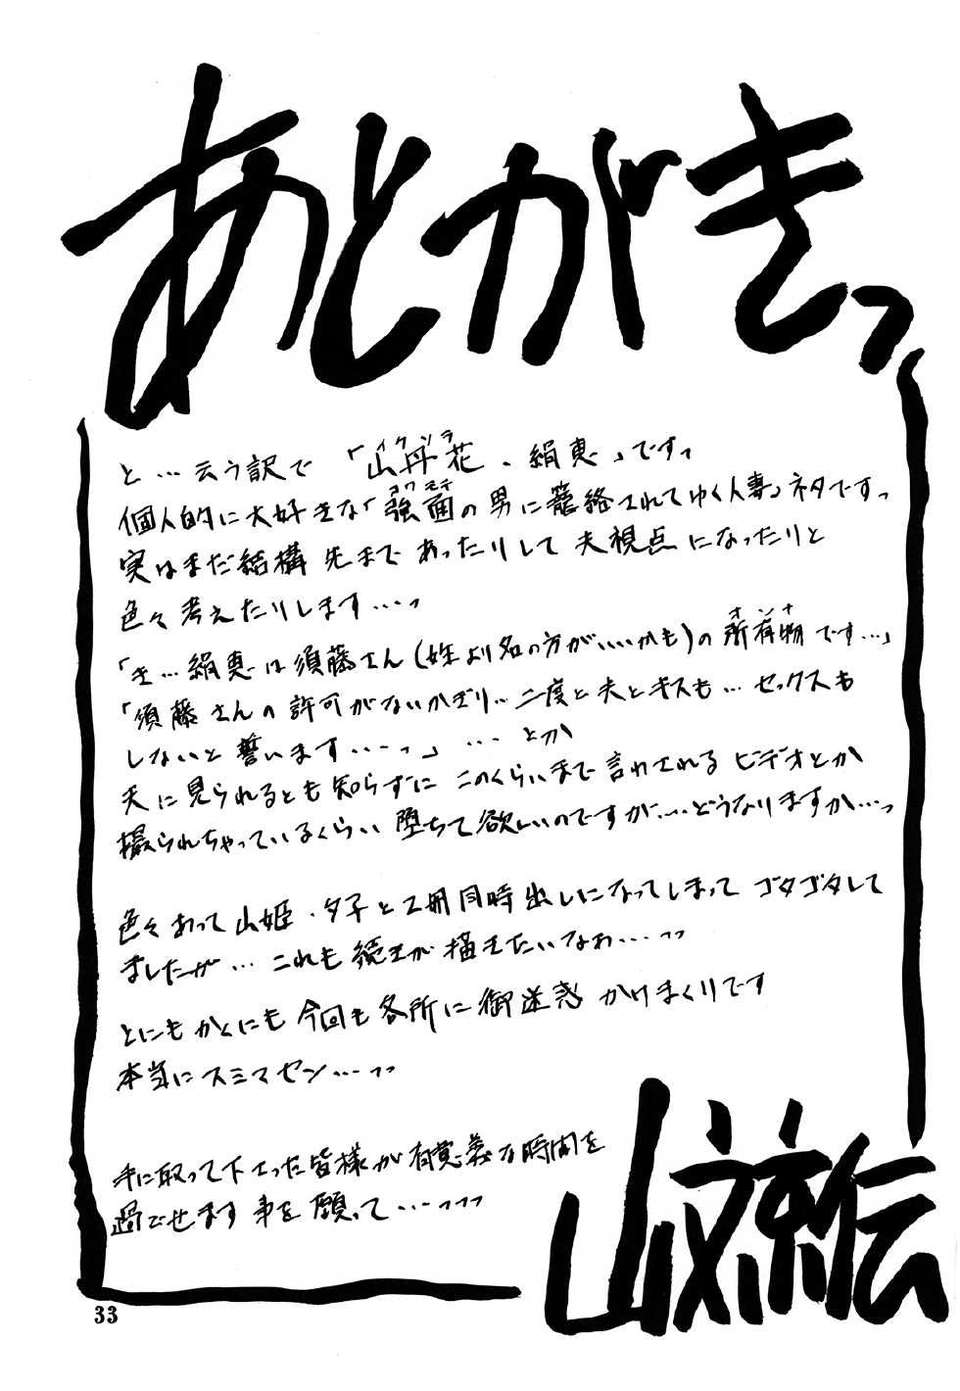 あとがきっ
と…云う訳で「山丹花、絹恵」ですっ
イクソラ
個人的に大好きな「強面の男に籠絡されてゆく人妻」ネタですっ
コワモテ
実はまだ結構先まであったりして夫視点になったりと
色々考えたりします…っ
「き…絹恵は須藤さん(姓より名の方がいいかも)の所有物です…」
オンナ
「須藤さんの許可がないかぎり…二度と夫とキスも…セックスも
しないと誓います……っ」…とか
夫に見られるとも知らずにこのくらいまで言わされるビデオとか
撮られちゃっているくらい堕ちて欲しいのですが…どうなりますか…っ
色々あって山姫・夕子と2冊同時出しになってしまってゴタゴタして
ましたが…これも続きが描きたいなぁ…っっ
とにもかくにも今回も各所に御迷惑かけまくりです
本当にスミマセン…っっ
手に取って下さった皆様が有意義な時間を
過ごせます事を願って…っっっ
山文京伝
33